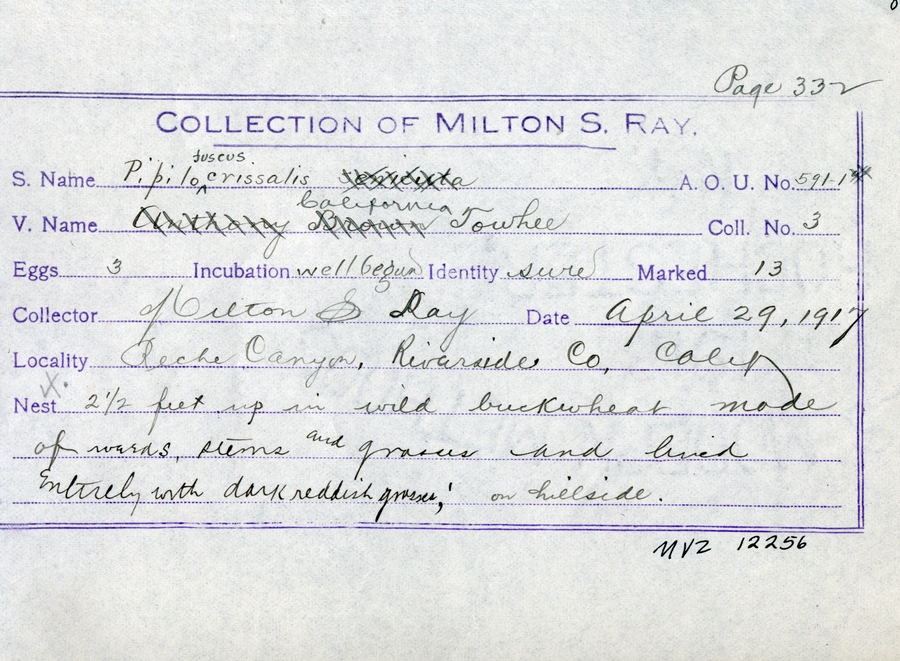 Page 332
COLLECTION OF MILTON S. RAY.
S. Name Pipilo fuscus crissalis senicula A. O. U. No. 591-1
V. Name Anthony Brown California Towhee Coll. No. 3
Eggs 3 Incubation well begun Identity sure Marked 13
Collector Milton S Ray Date April 29, 1917
Locality Reche Canyon, Riverside Co, Calif
X.
Nest 2 1/2 feet up in wild buckwheat made
of weeds, stems and grasses and lined
Entirely with dark reddish grasses, on hillside.
MVZ 12256